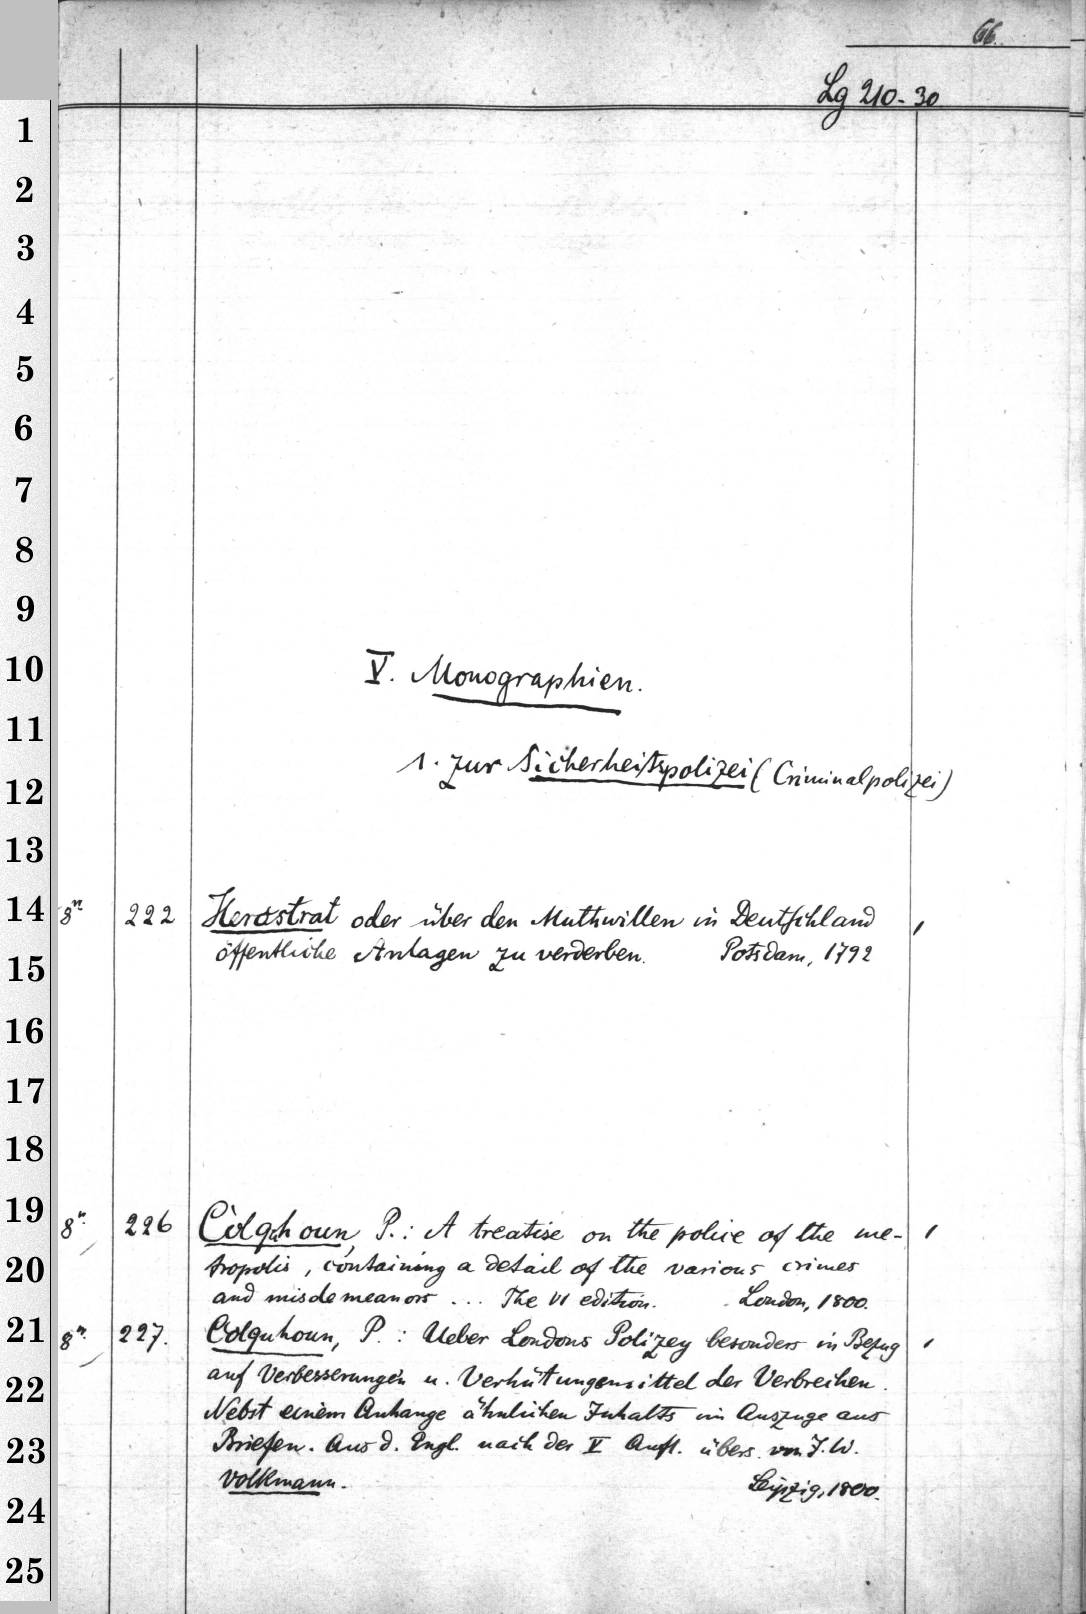 66.
Lg 210-30
1
2
3
4
5
6
7
8
9
10
V. Monographien.
11
1. zur Sicherheitspolizei (Criminalpolizei)
12
13
14
8° 222 Herostrat oder über den Muthwillen in Deutschland
öffentliche Anlagen zu verderben. Potsdam, 1792
15
16
17
18
19
8° 226 Colquhoun, P.: A treatise on the police of the me-
20
tropolis, containing a detail of the various crimes
and misdemeanors ... The VI edition. London, 1800.
21
8° 227. Colquhoun, P.: Ueber Londons Polizey besonders in Bezug
22
auf Verbesserungen u. Verhütungsmittel der Verbrechen.
Nebst einem Anhange ähnlichen Inhalts im Auszuge aus
23
Briefen. Aus d. Engl. nach der V Aufl. übers. von J. W.
Volkmann. Leipzig, 1800.
24
25